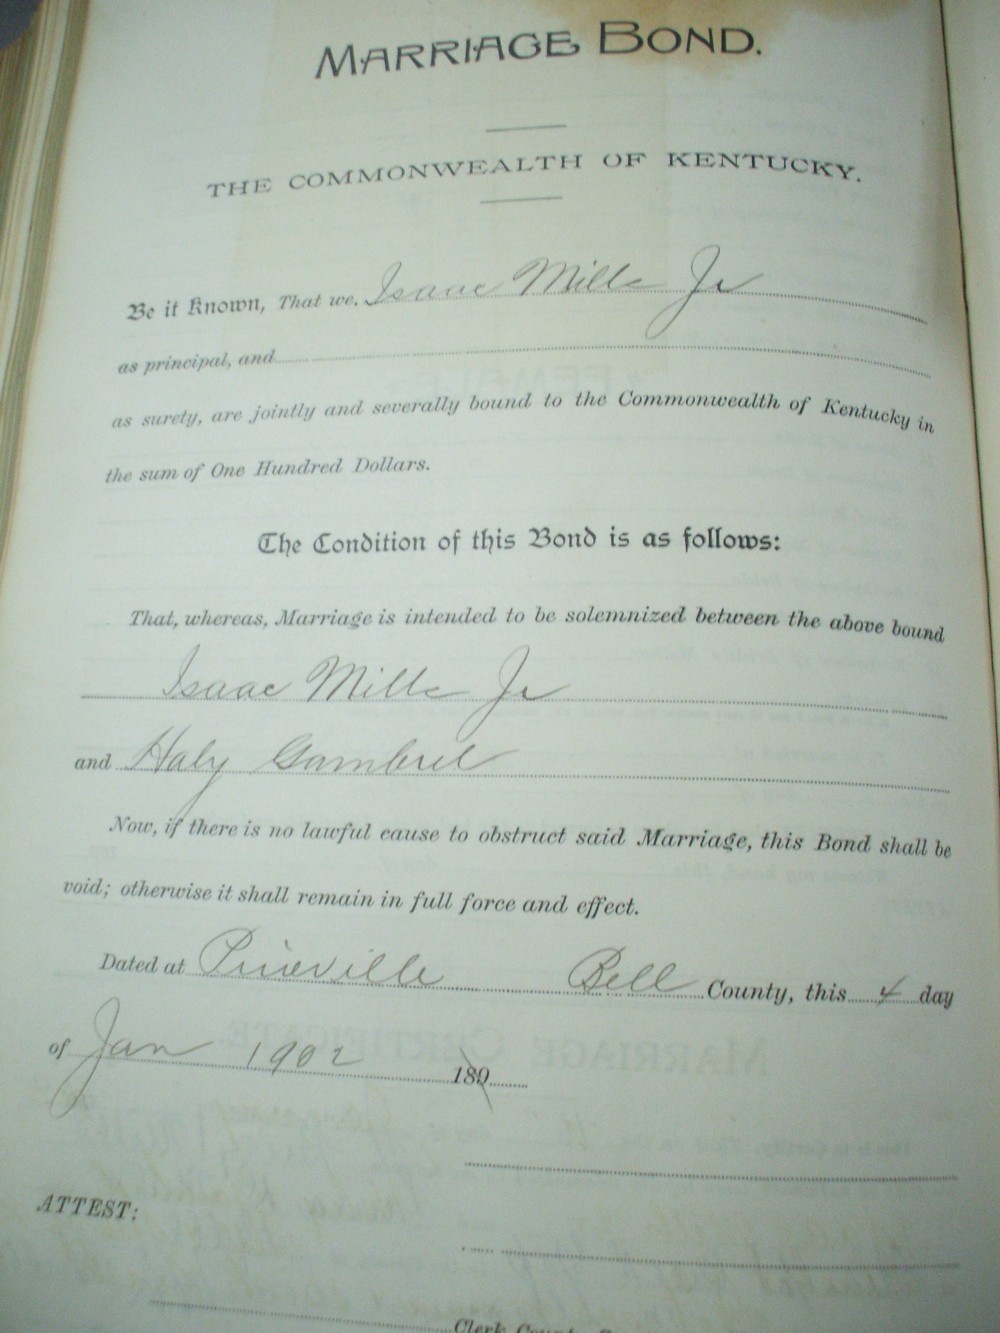 MARRIAGE BOND.
THE COMMONWEALTH OF KENTUCKY.
Be it Known, That we, Isaac Mills Jr
as principal, and
as surety, are jointly and severally bound to the Commonwealth of Kentucky in
the sum of One Hundred Dollars.
The Condition of this Bond is as follows:
That, whereas, Marriage is intended to be solemnized between the above bound
Isaac Mills Jr
and Haly Gambrel
Now, if there is no lawful cause to obstruct said Marriage, this Bond shall be
void; otherwise it shall remain in full force and effect.
Dated at Pineville Bell County, this 4 day
of Jan 1902 189
ATTEST:
Clerk County